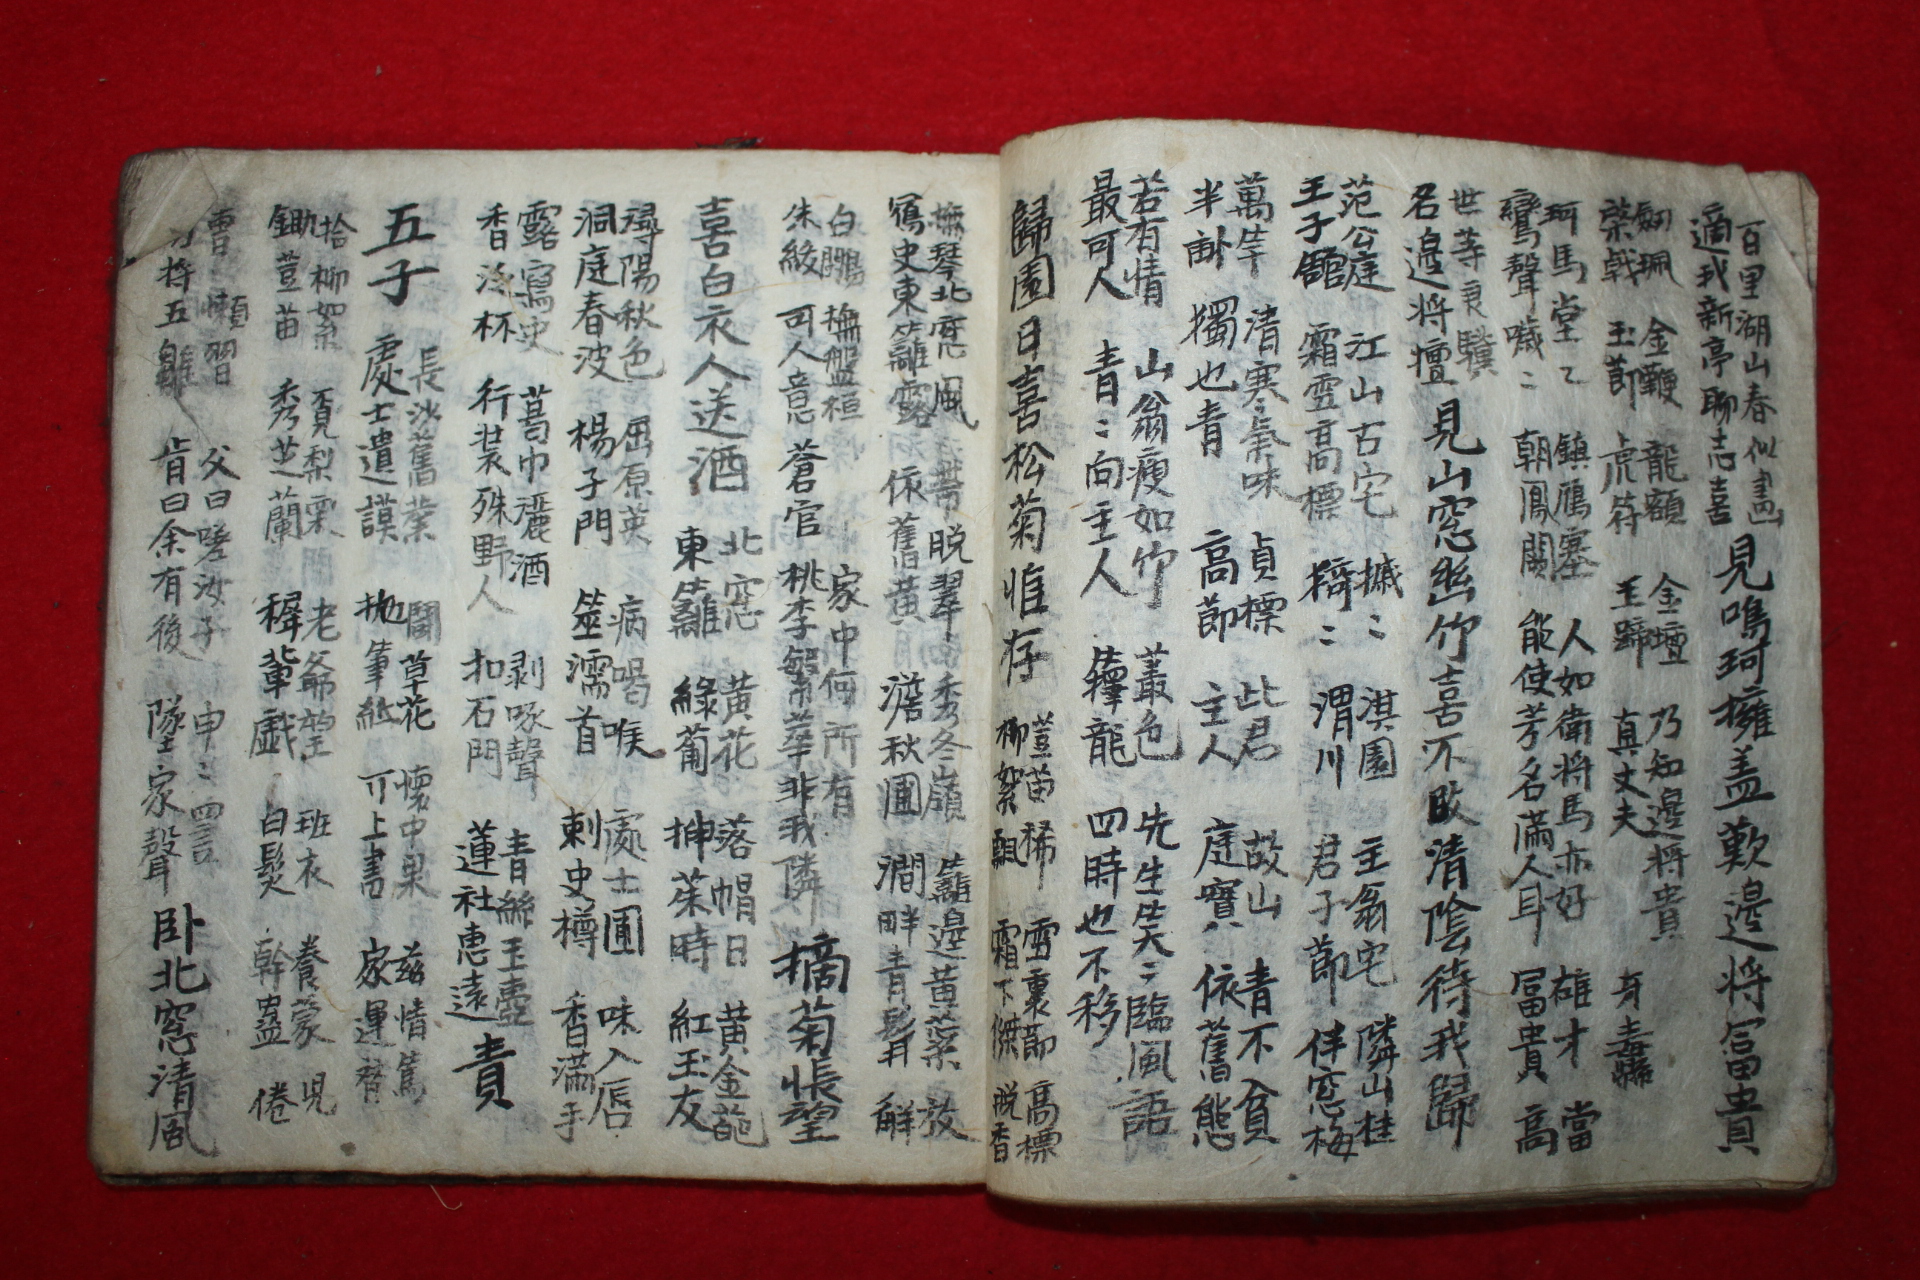 百里湖山春似畵
適我新亭聊志喜
見鳴珂擁盖歎邊将冨貴
劒珮 金鞭 龍額 金壇 乃知邊将貴
棨戟 玉節 虎符 玉蹄 真丈夫 身
珂馬堂々 鎮鴈塞 人如衛将馬亦好 雄才 當
鸞聲噦〻 朝鳳闕 能使芳名滿人耳 冨貴 高
世等良驥
名邊将壇
見山窓幽竹喜不改清陰待我歸
范公庭 江山古宅 摵〻 淇園 主翁宅 隣山桂
王子舘 霜雪高標 猗〻 渭川 君子節 伴窓梅
萬竿 清寒氣味 貞標 此君 故山 青不貧
半畝 獨也青 高節 主人 庭實 依舊態
若有情 山翁瘦如竹 叢色 先生笑〻臨風語
最可人 青〻向主人 籜龍 四時也不移
歸園日喜松菊惟存
荳苗稀 雪裏節 高標
柳絮飄 霜下傑 脱香
撫琴北窓風 脱翠 秀冬嶺 籬邊黄蘂 放
爲史東籬露 依舊黄 滋秋圃 澗畔青髯 解
白鷴 撫盤桓 家中何所有
朱綬 可人意 蒼官 桃李繁華非我隣
摘菊悵望
喜白衣人送酒
北窓 黄花 落帽日 黄金葩
東籬 綠葡 揷茱時 紅玉友
尋陽秋色 屈原英 病喝喉 處士圃 味入唇
洞庭春波 楊子門 筮濡首 刺史樽 香滿手
露寫史 葛巾灑酒 剥啄聲 青絲玉壺
香浮杯 行装殊野人 扣石門 蓮社惠遠
責
五子
長沙舊業 鬪草花 懷中果 玆情篤
處士遺謨 抛筆紙 可上書 家運替
拾柳絮 覓梨栗 老爺望 班衣 養蒙 兒
鋤荳苗 秀芝蘭 穉輩戱 白髮 幹蠱 倦
曹 懶習 父曰嗟汝子 申〻四言
将五雛 肯曰余有後 墜家聲
卧北窓清風